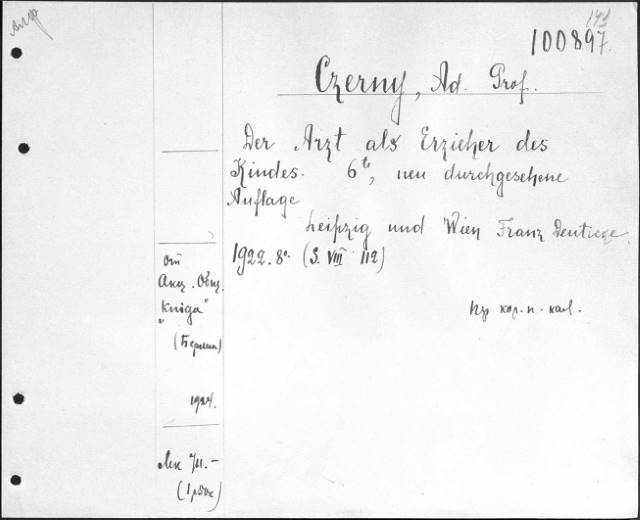 100897
Czerny, Ad. Prof.
Der Arzt als Erzieher des
Kindes. 6te, neu durchgesehene
Auflage
Leipzig und Wien Franz Deuticke
1922. 8°. (S. VIII 112)
от
Акц. Общ.
"Книга"
(Берлин)
1924.